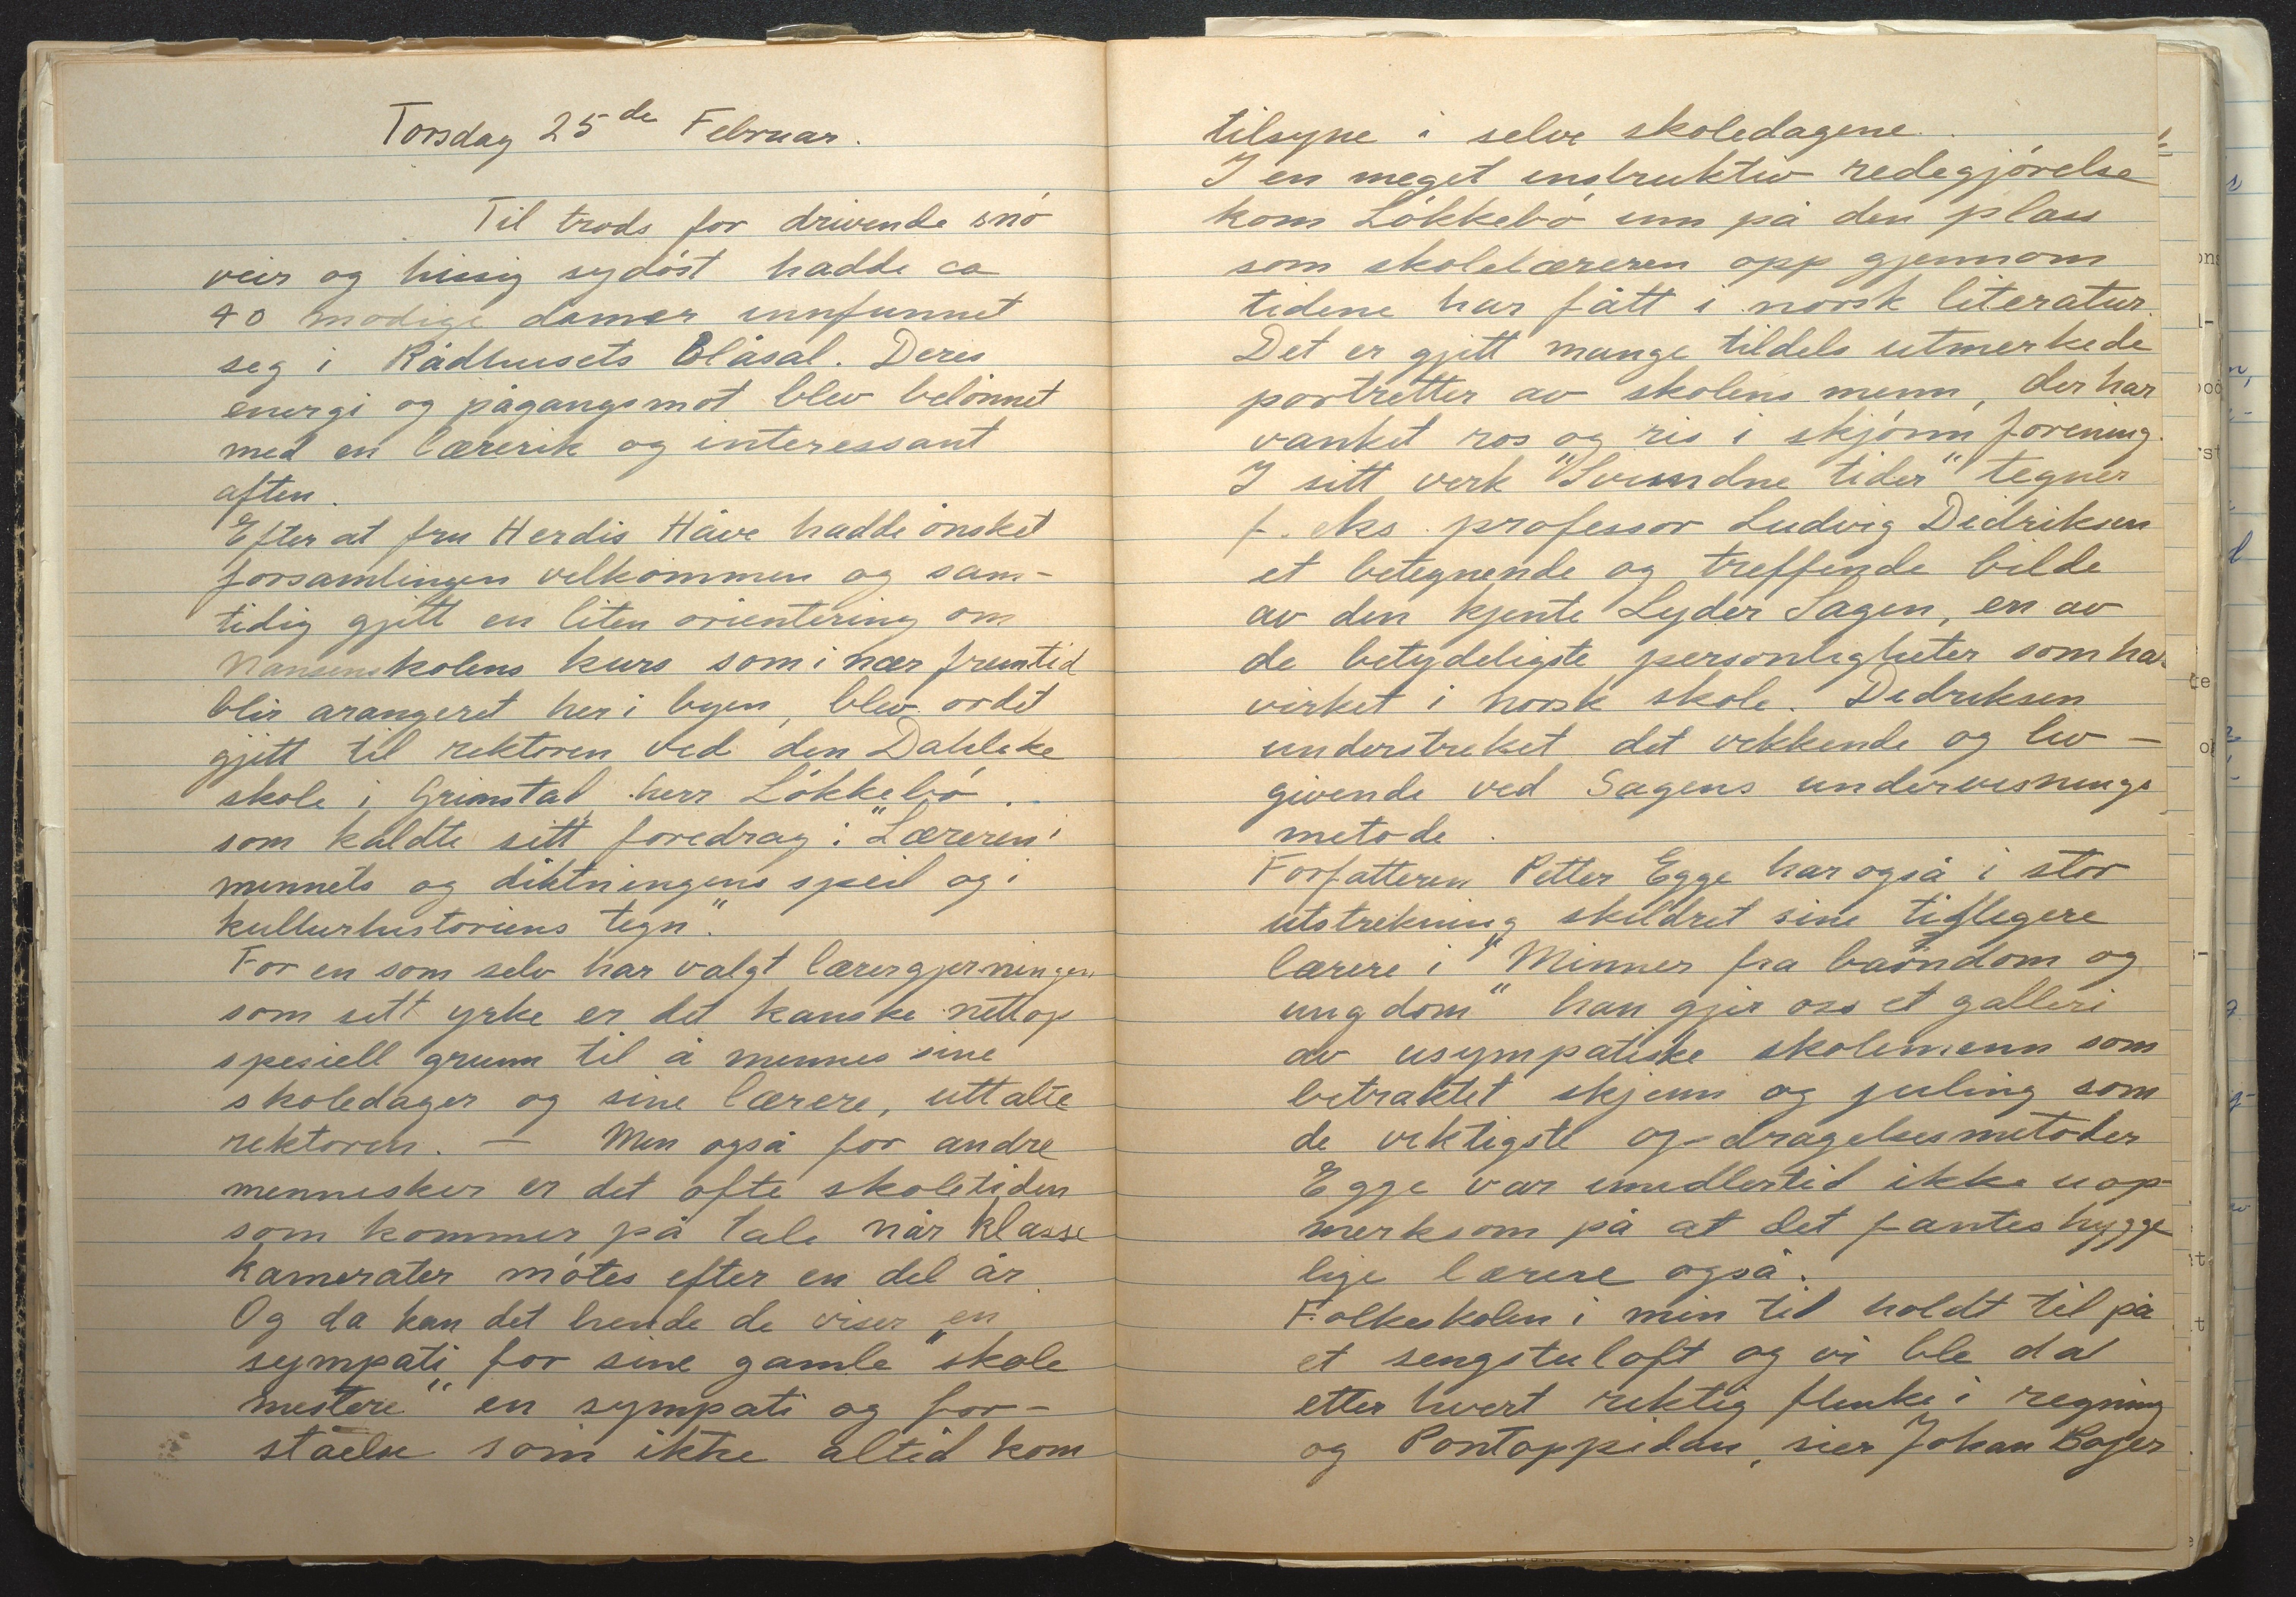 Torsdag 25de Februar.
Til trods for drivende snó
veir og hissig sydóst hadde ca
40 modige damer innfunnet
seg i Rådhusets Blåsal. Deres
energi og pågangsmot blev belónnet
med en lærerik og interessant
aften.
Efter at fru Herdis Håve hadde ónsket
forsamlingen velkommen og sam-
tidig gjitt en liten orientering om
Nansenskolens kurs som i nær fremtid
blir arangeret her i byen, blev ordet
gjitt til rektoren ved den Dahlske
skole i Grimstad herr Lókkebó.
som kaldte sitt foredrag: "Læreren i
minnets og diktningens speil og i
kulturhistoriens tegn".
For en som selv har valgt lærergjerningen
som sitt yrke er det kanske nettop
spesiell grunn til å minnes sine
skoledager og sine lærere, uttalte
rektoren. — Men også for andre
mennesker er det ofte skoletiden
som kommer på tale når klasse
kamerater mótes efter en del år.
Og da kan det hende de viser en
sympati for sine gamle "skole
mestere" en sympati og for-
ståelse som ikke altid kom
tilsyne i selve skoledagene.
I en meget instruktiv redegjórelse
kom Lókkebó inn på den plass
som skolelæreren opp gjennom
tidene har fått i norsk literatur.
Det er gjitt mange tildels utmerkede
portretter av skolens menn, der har
vanket ros og ris i skjónn forening.
I sitt verk "Svundne tider" tegner
f. eks. professor Ludvig Didriksen
et betegnende og treffende bilde
av den kjente Lyder Sagen, en av
de betydeligste personligheter som har
virket i norsk skole. Didriksen
understreket det vekkende og liv-
givende ved Sagens undervisnings
metode.
Forfatteren Petter Egge har også i stor
utstrekning skildret sine tidligere
lærere i "Minner fra barndom og
ungdom" han gjir oss et galleri
av usympatiske skolemenn som
betraktet skjenn og juling som
de viktigste opdragelsesmetoder
Egge var imidlertid ikke uop-
merksom på at det fantes hygge
lige lærere også.
Folkeskolen i min tid holdt til på
et sengstuloft og vi ble da
etter hvert riktig flinke i regning
og Pontoppidan, sier Johan Bojer